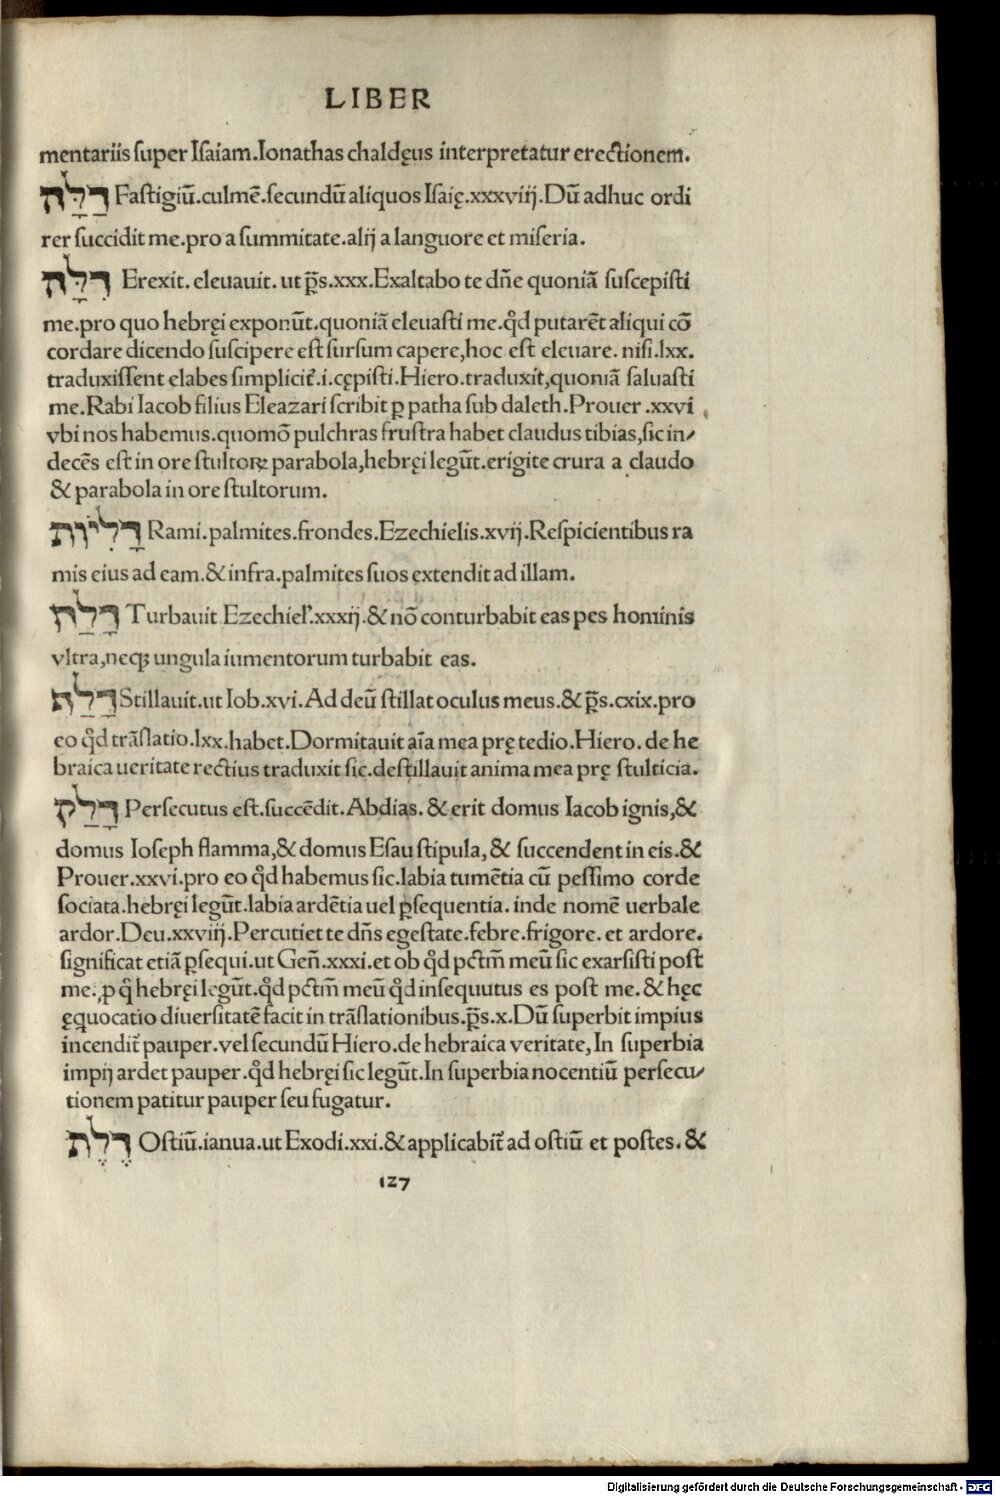 LIBER
mentariis ſuper Iſaiam.Ionathas chaldęus interpretatur erectionem.
דַלָּה Faſtigiū.culmē.ſecundū aliquos Iſaię.xxxviij.Dū adhuc ordi
rer ſuccidit me.pro a ſummitate.alij a languore et miſeria.
דִלָּה Erexit.eleuauit.ut p̄s.xxx.Exaltabo te dn̄e quoniā ſuſcepiſti
me.pro quo hebręi exponūt.quoniā eleuaſti me.qd̛ putarēt aliqui cō
cordare dicendo ſuſcipere eſt ſurſum capere,hoc eſt eleuare. niſi.lxx.
traduxiſſent elabes ſimplicit̛.i.cępiſti.Hiero.traduxit,quoniā ſaluaſti
me.Rabi Iacob filius Eleazari ſcribit ꝑ patha ſub daleth.Prouer.xxvi
vbi nos habemus.quomō pulchras fruſtra habet claudus tibias,ſic in⸗
decēs eſt in ore ſtultoꝝ parabola,hebręi legūt.erigite crura a claudo
& parabola in ore ſtultorum.
דָלִיוֹת Rami.palmites.frondes.Ezechielis.xvij.Reſpicientibus ra
mis eius ad eam.& infra.palmites ſuos extendit ad illam.
דָלַח Turbauit Ezechiel̛.xxxij.& nō conturbabit eas pes hominis
vltra,neqꝫ ungula iumentorum turbabit eas.
דַלַף Stillauit.ut Iob.xvi.Ad deū ſtillat oculus meus.& p̄s.cxix.pro
eo qd̛ trāſlatio.lxx.habet.Dormitauit aīa mea prę tedio.Hiero. de he
braica ueritate rectius traduxit ſic.deſtillauit anima mea prę ſtulticia.
דָלַק Perſecutus eſt.ſuccēdit.Abdias. & erit domus Iacob ignis,&
domus Ioſeph flamma,& domus Eſau ſtipula,& ſuccendent in eis.&
Prouer.xxvi.pro eo qd̛ habemus ſic.labia tumētia cū peſſimo corde
ſociata.hebręi legūt.labia ardētia uel ꝑſequentia. inde nomē uerbale
ardor.Deu.xxviij.Percutiet te dn̄s egeſtate.febre.frigore. et ardore.
ſignificat etiā ꝑſequi.ut Gen̄.xxxi.et ob qd̛ pctm̄ meū ſic exarſiſti poſt
me.ꝓ q̛ hebręi legūt.qd̛ pctm̄ meū qd̛ inſequutus es poſt me.& hęc
ęquocatio diuerſitatē facit in trāſlationibus.p̄s.x.Dū ſuperbit impius
incendit̛ pauper.vel ſecundū Hiero.de hebraica veritate,In ſuperbia
impij ardet pauper.qd̛ hebręi ſic legūt.In ſuperbia nocentiū perſecu⸗
tionem patitur pauper ſeu fugatur.
דֶלֶת Oſtiū.ianua.ut Exodi.xxi.& applicabit̛ ad oſtiū et poſtes.&
127
Digitalisierung gefördert durch die Deutsche Forschungsgemeinschaft - DFG